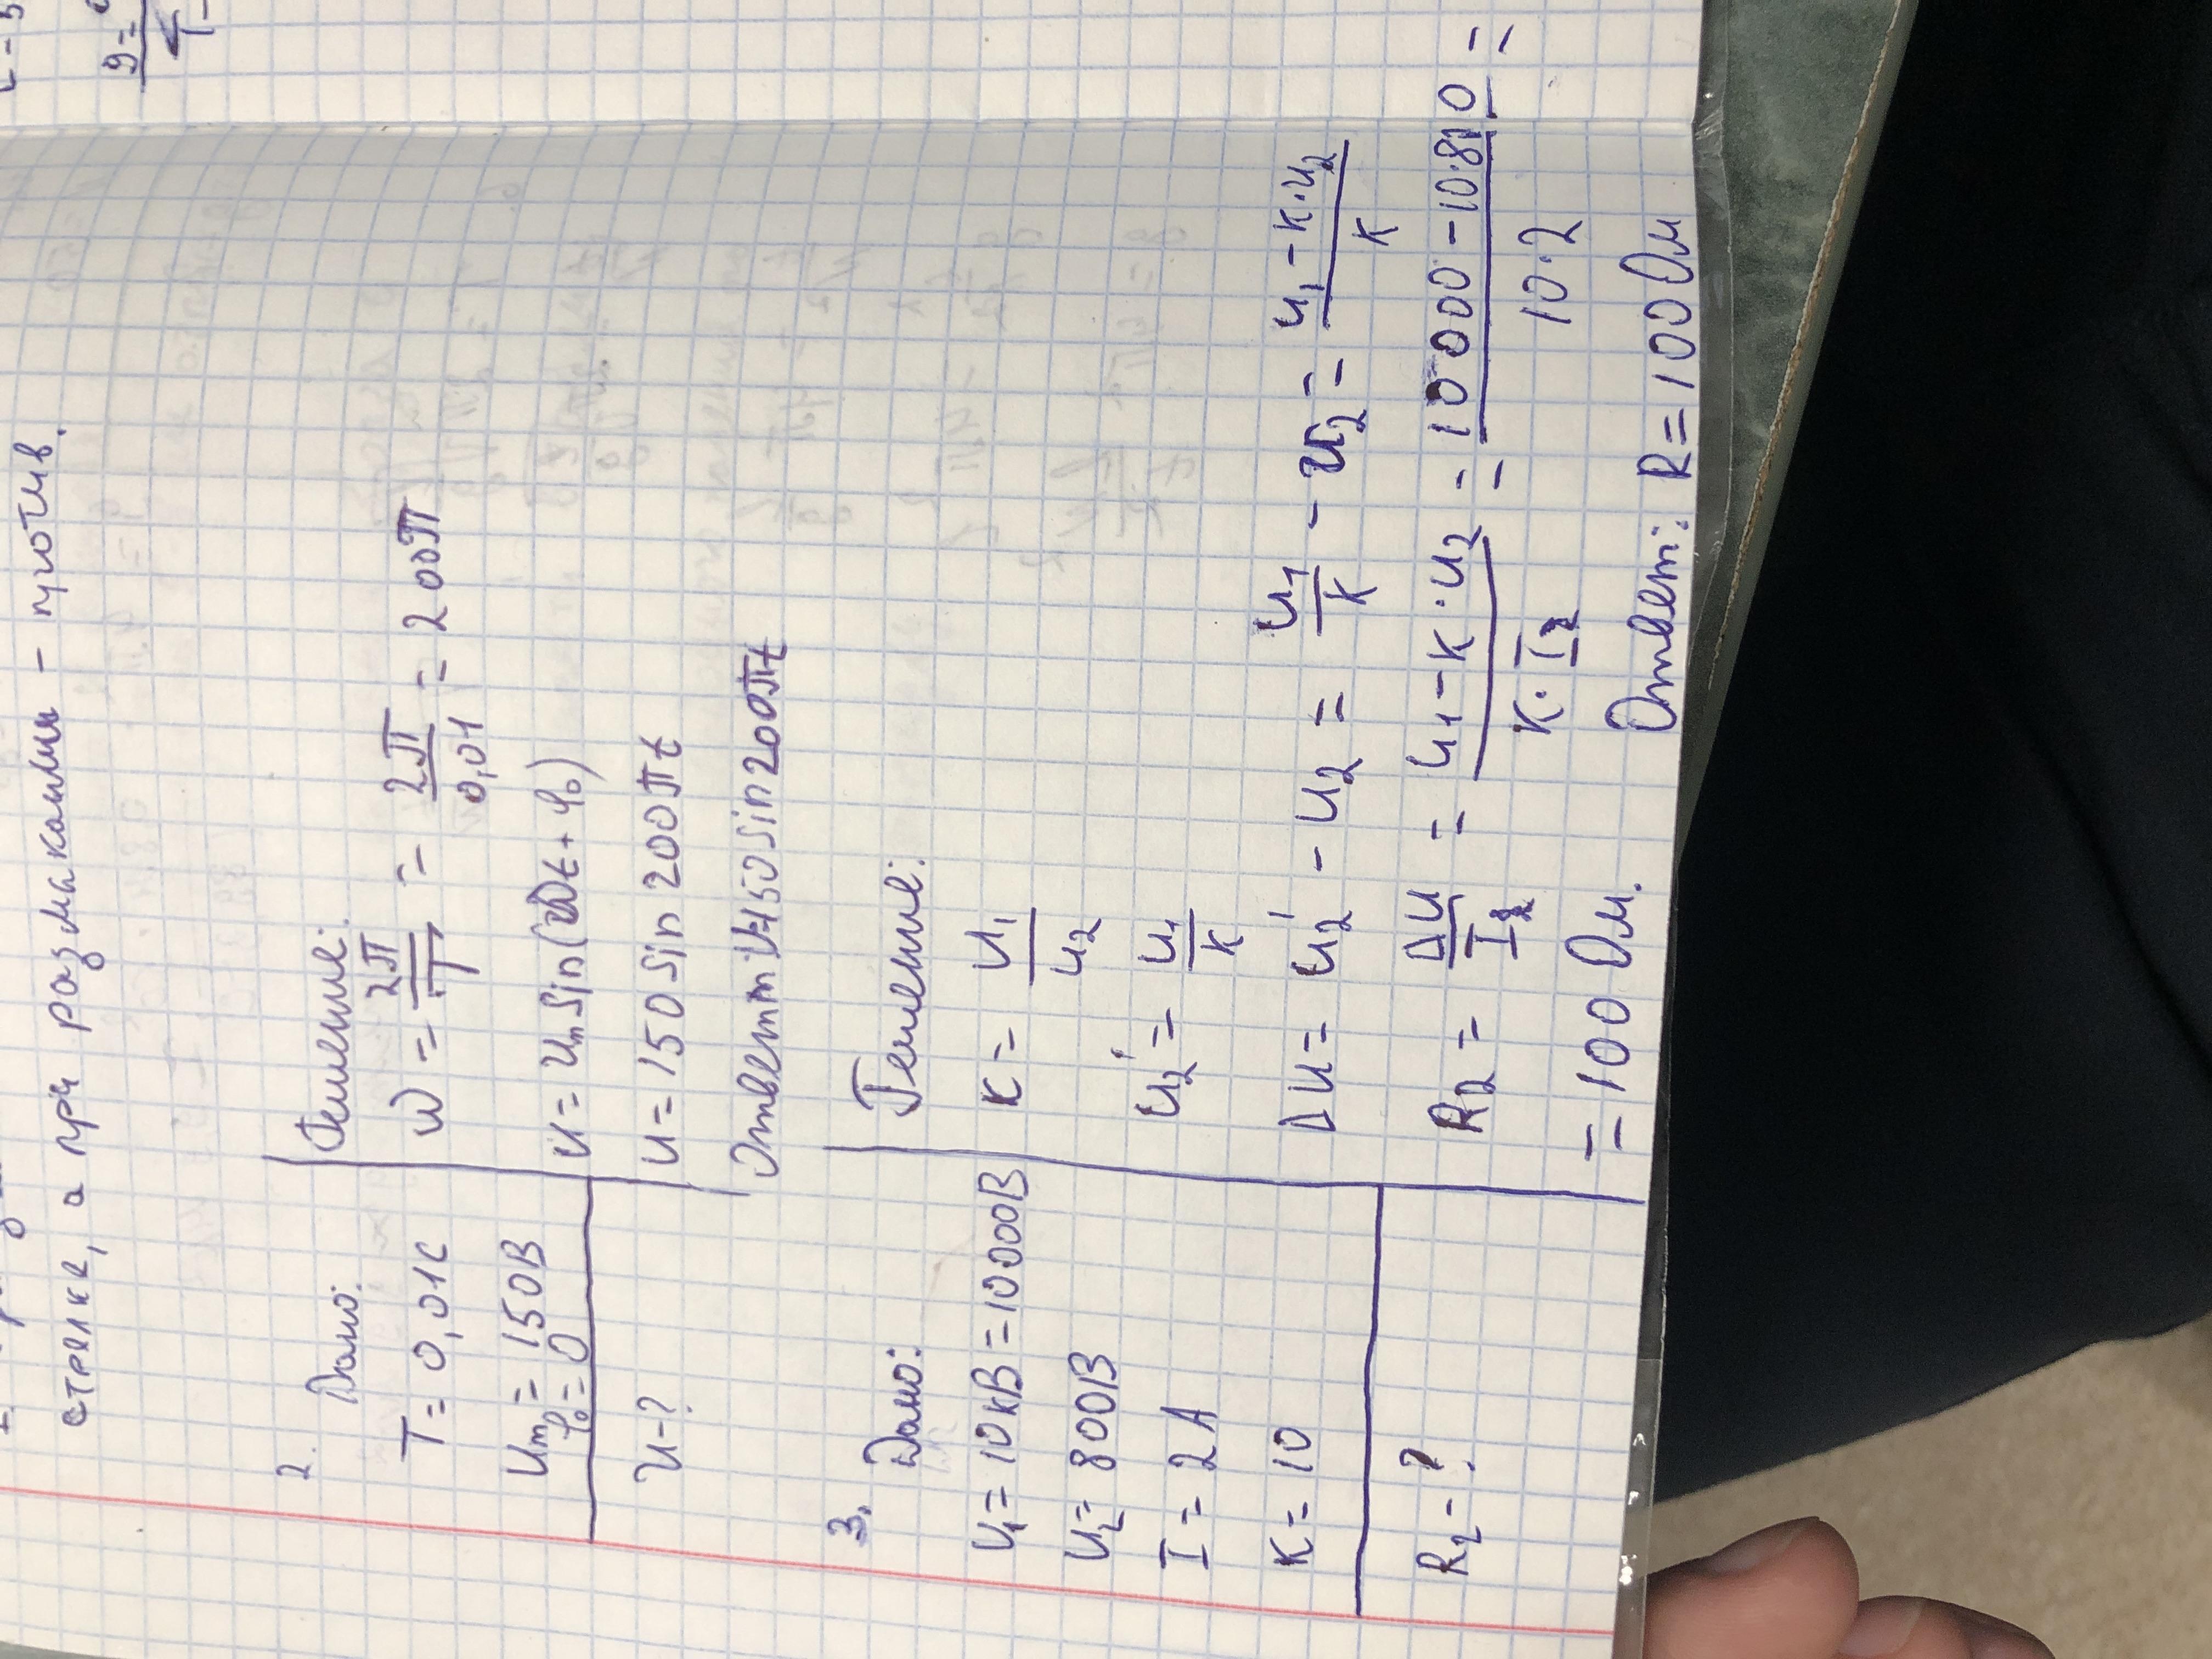 стрелке, а при размыкании - против.
2. Дано:
T = 0,01с
Um = 150В
φ₀ = 0
u - ?
Решение:
ω = 2π/T = 2π/0,01 = 200π
u = Um sin(ωt + φ₀)
u = 150 sin 200πt
Ответ: u=150 sin 200πt
3. Дано:
U₁ = 10кВ = 10000В
U₂ = 800В
I = 2А
K = 10
R₂ - ?
Решение:
K = U₁/U₂
U₂' = U₁/K
ΔU = U₂' - U₂ = U₁/K - U₂ = (U₁ - K·U₂)/K
R₂ = ΔU/I₂ = (U₁ - K·U₂)/(K·I₂) = (10000 - 10·800)/(10·2) =
= 100 Ом.
Ответ: R = 100 Ом